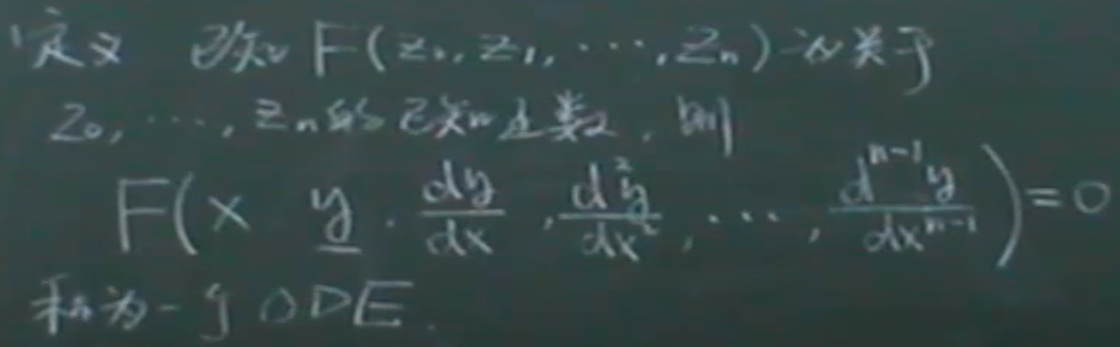 定义 已知 F(z₀, z₁, ⋯, zₙ) 为关于
z₀, ⋯, zₙ的已知函数, 则
F(x y, dy/dx, d²y/dx², ⋯, dⁿ⁻¹y/dxⁿ⁻¹) = 0
称为一个 ODE.